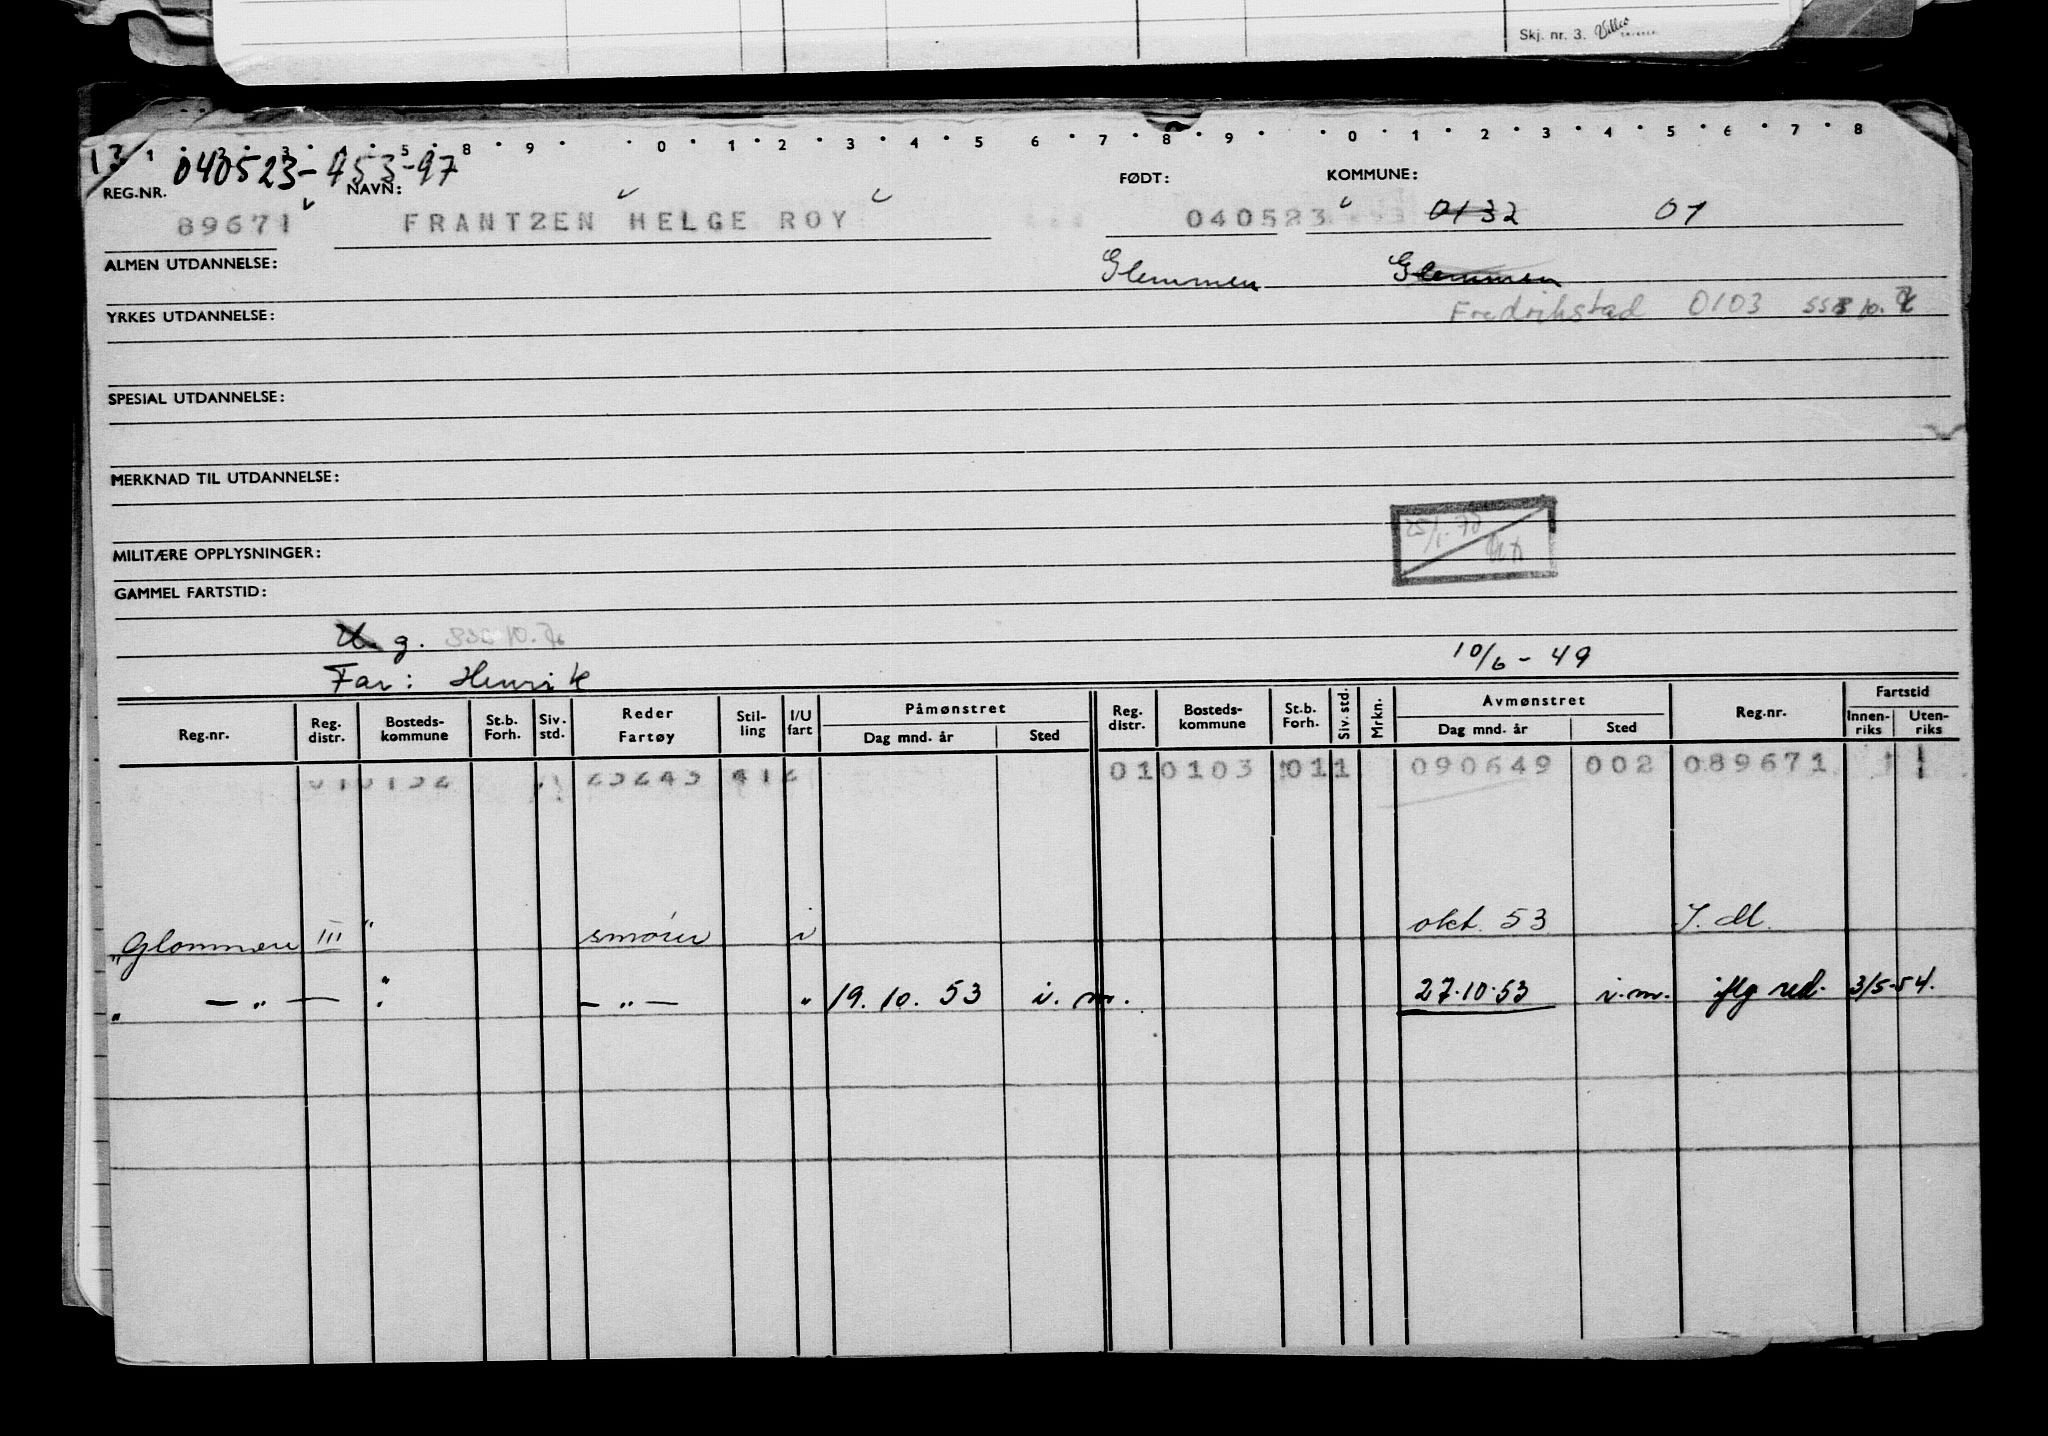 Skj. nr. 3.
1 3 5 8 9 0 1 2 3 4 5 6 7 8 9 0 1 2 3 4 5 6 7 8
13
040523-453-97
REG.NR. NAVN: FØDT: KOMMUNE:
89671 FRANTZEN HELGE ROY 040523 0132 01
ALMEN UTDANNELSE: Glemmen Glemmen
YRKES UTDANNELSE: Fredrikstad 0103
SPESIAL UTDANNELSE:
MERKNAD TIL UTDANNELSE:
MILITÆRE OPPLYSNINGER:
GAMMEL FARTSTID:
g.
Far: Henrik 10/6-49
Reg.nr. Reg. distr. Bosteds-kommune St.b. Forh. Siv. std. Reder Fartøy Stil-ling I/U fart Påmønstret Dag mnd. år Sted Reg. distr. Bosteds-kommune St.b. Forh. Siv. std. Mrkn. Avmønstret Dag mnd. år Sted Reg.nr. Fartstid Innen-riks Uten-riks
010132 23243 412 010103 011 090649 002 089671
"Glommen III " smører i okt. 53 I. M.
" — " — " — " — " 19. 10. 53 i. m. 27.10.53 i.m. iflg red. 3/5-54.